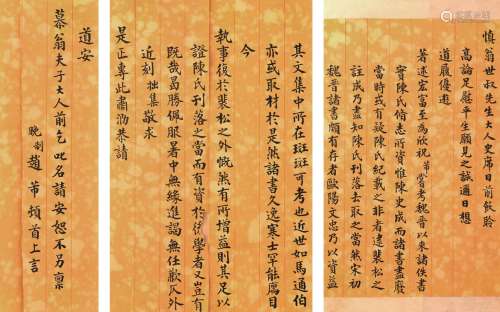 慎翁世叔先生大人史席日前飫聆
高論足慰平生願見之誠邇日想
道履優遊
著述宏富至為欣祝芾嘗考魏晉以來諸佚書
實陳氏脩志所資惟陳史成而諸書盡廢
當時或有疑陳氏紀載之非者逮裴松之
註成乃盡知陳氏刊落去取之當然宋初
魏晉諸書頗有存者歐陽文忠乃以資益
其文集中所在斑斑可考也近世如馬通伯
亦或取材於是然諸書久逸寒士罕能寓目
今
執事復於裴松之外慨然有所增益則其足以
證陳氏刊落之當而有資於後學者又豈有
既哉曷勝佩服暑中無緣進謁無任歉仄外
近刻拙集敬求
是正專此肅泐恭請
道安
慕翁夫子大人前乞叱名請安恕不另稟
晚制趙芾頓首上言